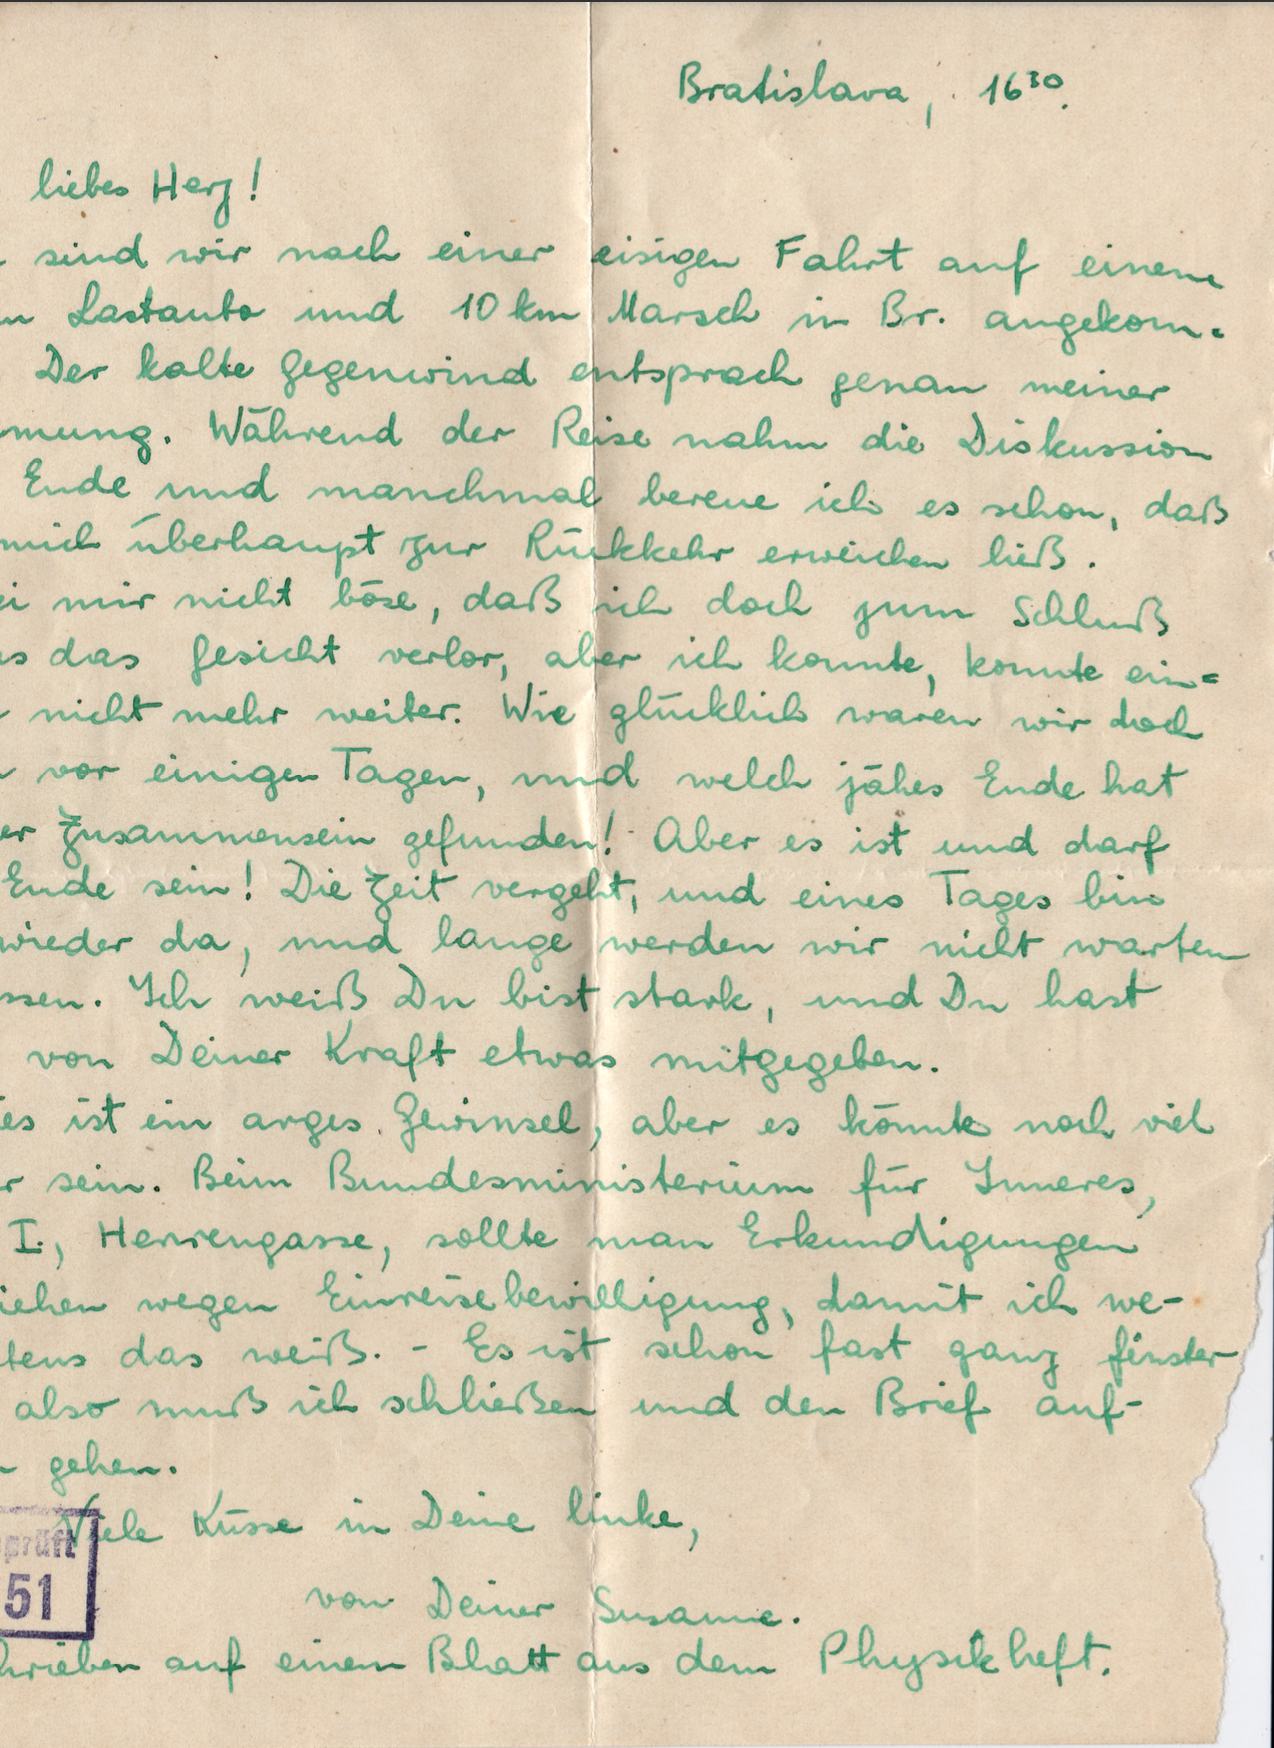 Bratislava, 16³⁰.
liebes Herz!
sind wir nach einer eisigen Fahrt auf einem
n Lastauto und 10 km Marsch in Br. angekom=
Der kalte Gegenwind entsprach genau meiner
mung. Während der Reise nahm die Diskussion
Ende und manchmal bereue ich es schon, daß
mich überhaupt zur Rückkehr erweichen ließ.
ei mir nicht böse, daß ich doch zum Schluß
s das Gesicht verlor, aber ich konnte, konnte ein=
nicht mehr weiter. Wie glücklich waren wir doch
vor einigen Tagen, und welch jähes Ende hat
er Zusammensein gefunden! Aber es ist und darf
Ende sein! Die Zeit vergeht, und eines Tages bin
wieder da, und lange werden wir nicht warten
ssen. Ich weiß Du bist stark, und Du hast
von Deiner Kraft etwas mitgegeben.
es ist ein arges Gewinsel, aber es könnte noch viel
r sein. Beim Bundesministerium für Inneres,
I., Herrengasse, sollte man Erkundigungen
iehen wegen Einreisebewilligung, damit ich we-
tens das weiß. - Es ist schon fast ganz finster
also muß ich schließen und den Brief auf-
n gehen.
Viele Küsse in Deine linke,
prüft
51
von Deiner Susanne.
hrieben auf einem Blatt aus dem Physikheft.